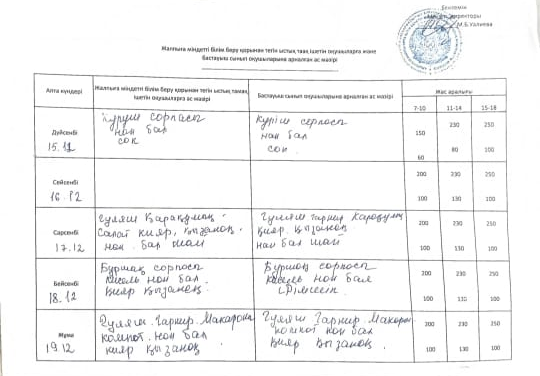 Бекітемін
директоры
М.Б.Халиева
Жалпыға міндетті білім беру қорынан тегін ыстық тамақ ішетін оқушыларға және
бастауыш сынып оқушыларына арналған ас мәзірі
Апта күндері
Жалпыға міндетті білім беру қорынан тегін ыстық тамақ
ішетін оқушыларға ас мәзірі
Бастауыш сынып оқушыларына арналған ас мәзірі
Жас аралығы
7-10 11-14 15-18
Дүйсенбі
15.12
Күріш сорпасы
нан бал
сок
Күріш сорпасы
нан бал
сок.
150 230 250
60 80 100
Сейсенбі
16.12
200 230 250
100 130 100
Сәрсенбі
17.12
Гуляш Қарақұмық.
Салат қияр, қызанақ.
нан. бал шай
Гуляш гарнир Қарақұмық
қияр. қызанақ
нан бал шай
200 230 250
100 130 100
Бейсенбі
18.12
Бұршақ сорпасы
кисель нан бал
қияр қызанақ.
Бұршақ сорпасы
кисель нан бал
200 230 250
100 130 100
Жұма
19.12
Гуляш. Гарнир. Макарон
компот. нан бал
қияр қызанақ
Гуляш Гарнир. Макарон
компот нан бал
қияр қызанақ.
200 230 250
100 130 100